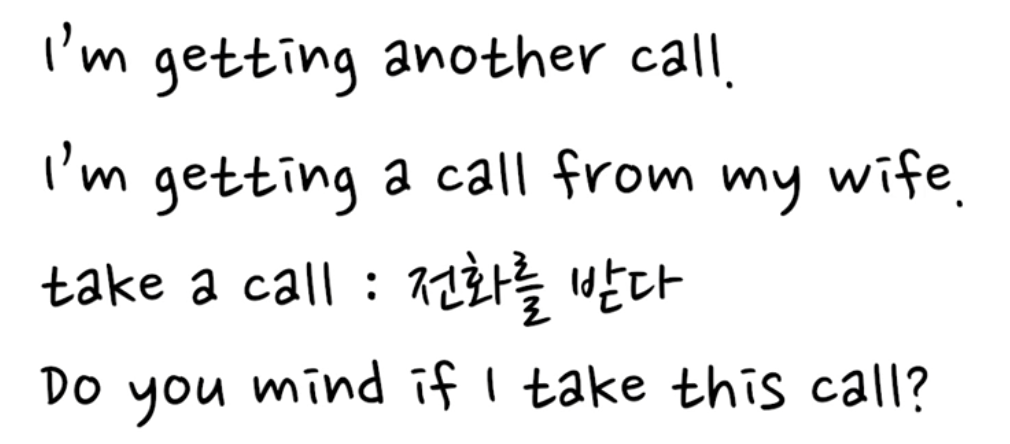 I'm getting another call.
I'm getting a call from my wife.
take a call : 전화를 받다
Do you mind if I take this call?